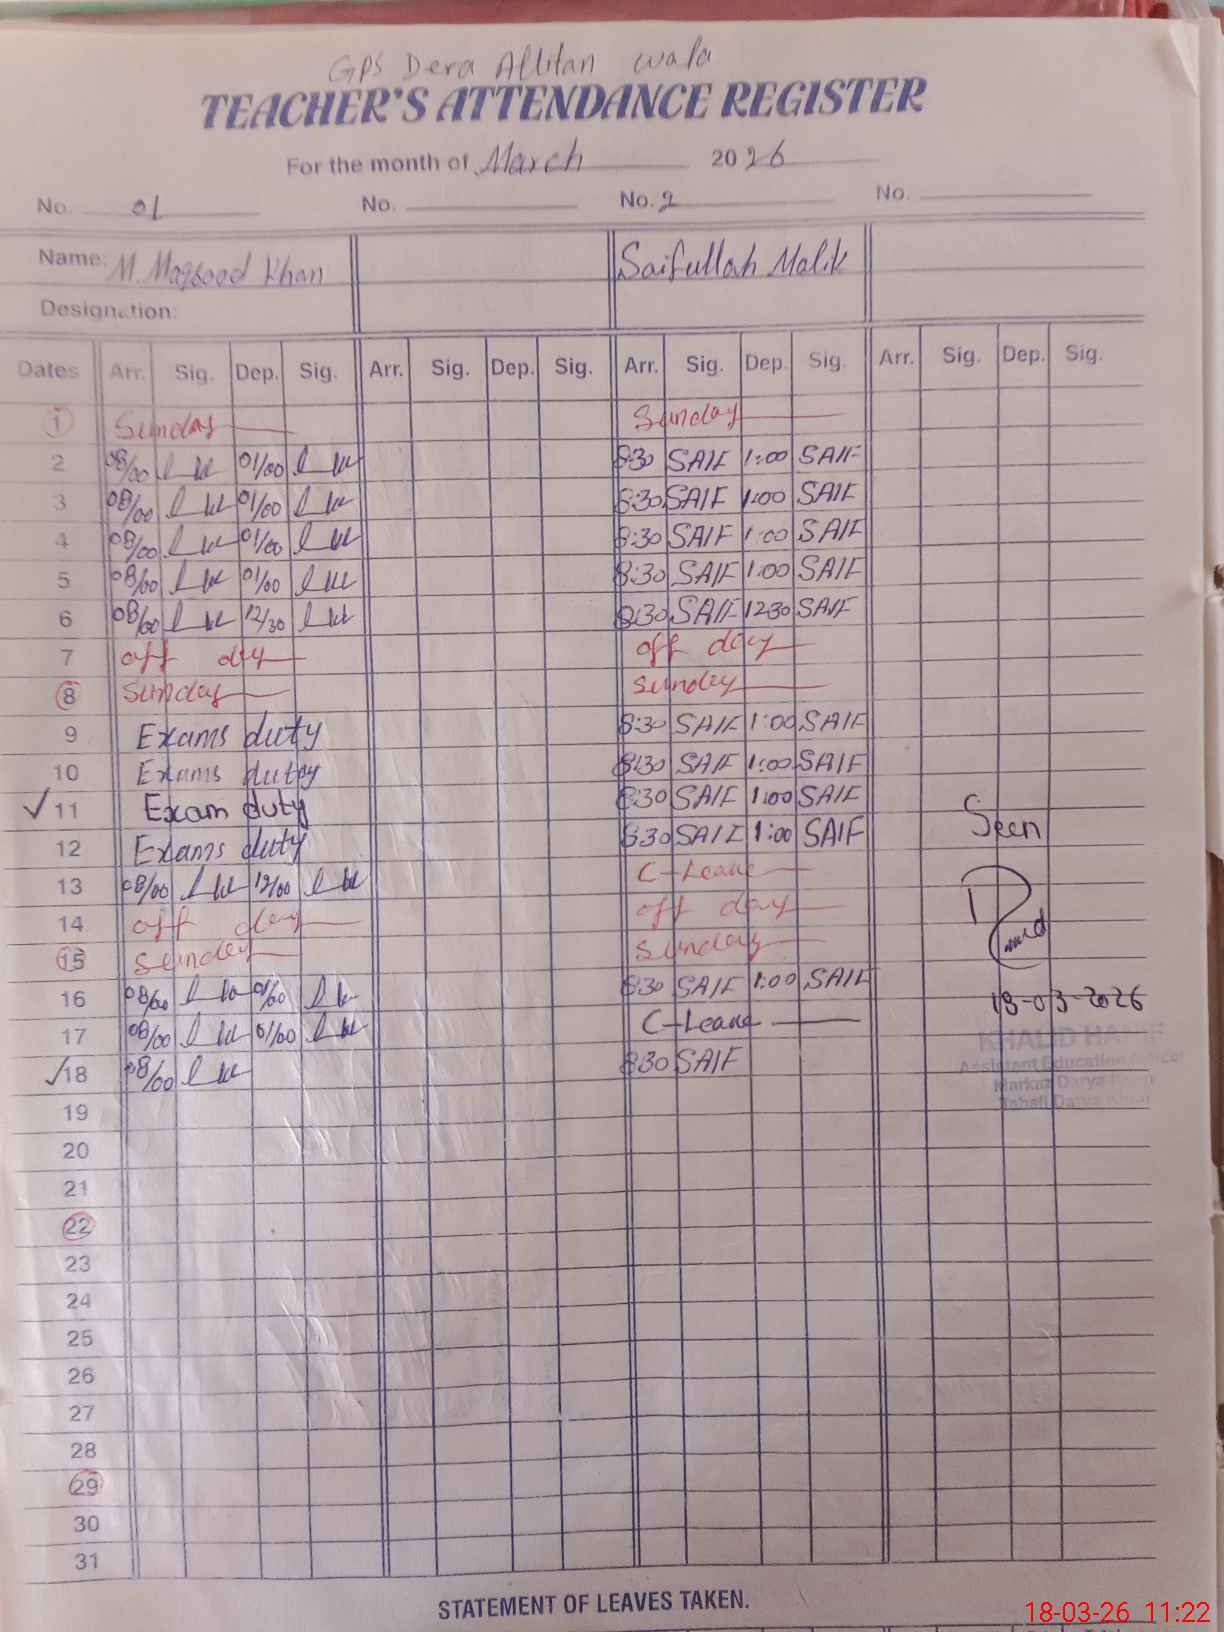 GPS Dera Allitan wala
TEACHER'S ATTENDANCE REGISTER
For the month of March 2026
No. 01 No. No. 2 No.
Name: M. Maqsood Khan Saifullah Malik
Designation:
Dates Arr. Sig. Dep. Sig. Arr. Sig. Dep. Sig. Arr. Sig. Dep. Sig. Arr. Sig. Dep. Sig.
1 Sunday Sunday
2 08/00 01/00 8:30 SAIF 1:00 SAIF
3 08/00 01/00 8:30 SAIF 1:00 SAIF
4 08/00 01/00 8:30 SAIF 1:00 SAIF
5 08/00 01/00 8:30 SAIF 1:00 SAIF
6 08/00 12/30 8:30 SAIF 1230 SAIF
7 off day off day
8 Sunday Sunday
9 Exams duty 8:30 SAIF 1:00 SAIF
10 Exams duty 8:30 SAIF 1:00 SAIF
11 Exam duty 8:30 SAIF 1:00 SAIF
Seen
12 Exams duty 8:30 SAIF 1:00 SAIF
13 08/00 12/00 C-Leave
14 off day off day
15 Sunday Sunday
16 08/00 01/00 8:30 SAIF 1:00 SAIF
18-03-2026
17 08/00 01/00 C-Leave
KHALID HANIF
Assistant Education Officer
Markaz Darya Khan
Tehsil Darya Khan
18 08/00 8:30 SAIF
19
20
21
22
23
24
25
26
27
28
29
30
31
STATEMENT OF LEAVES TAKEN.
18-03-26 11:22